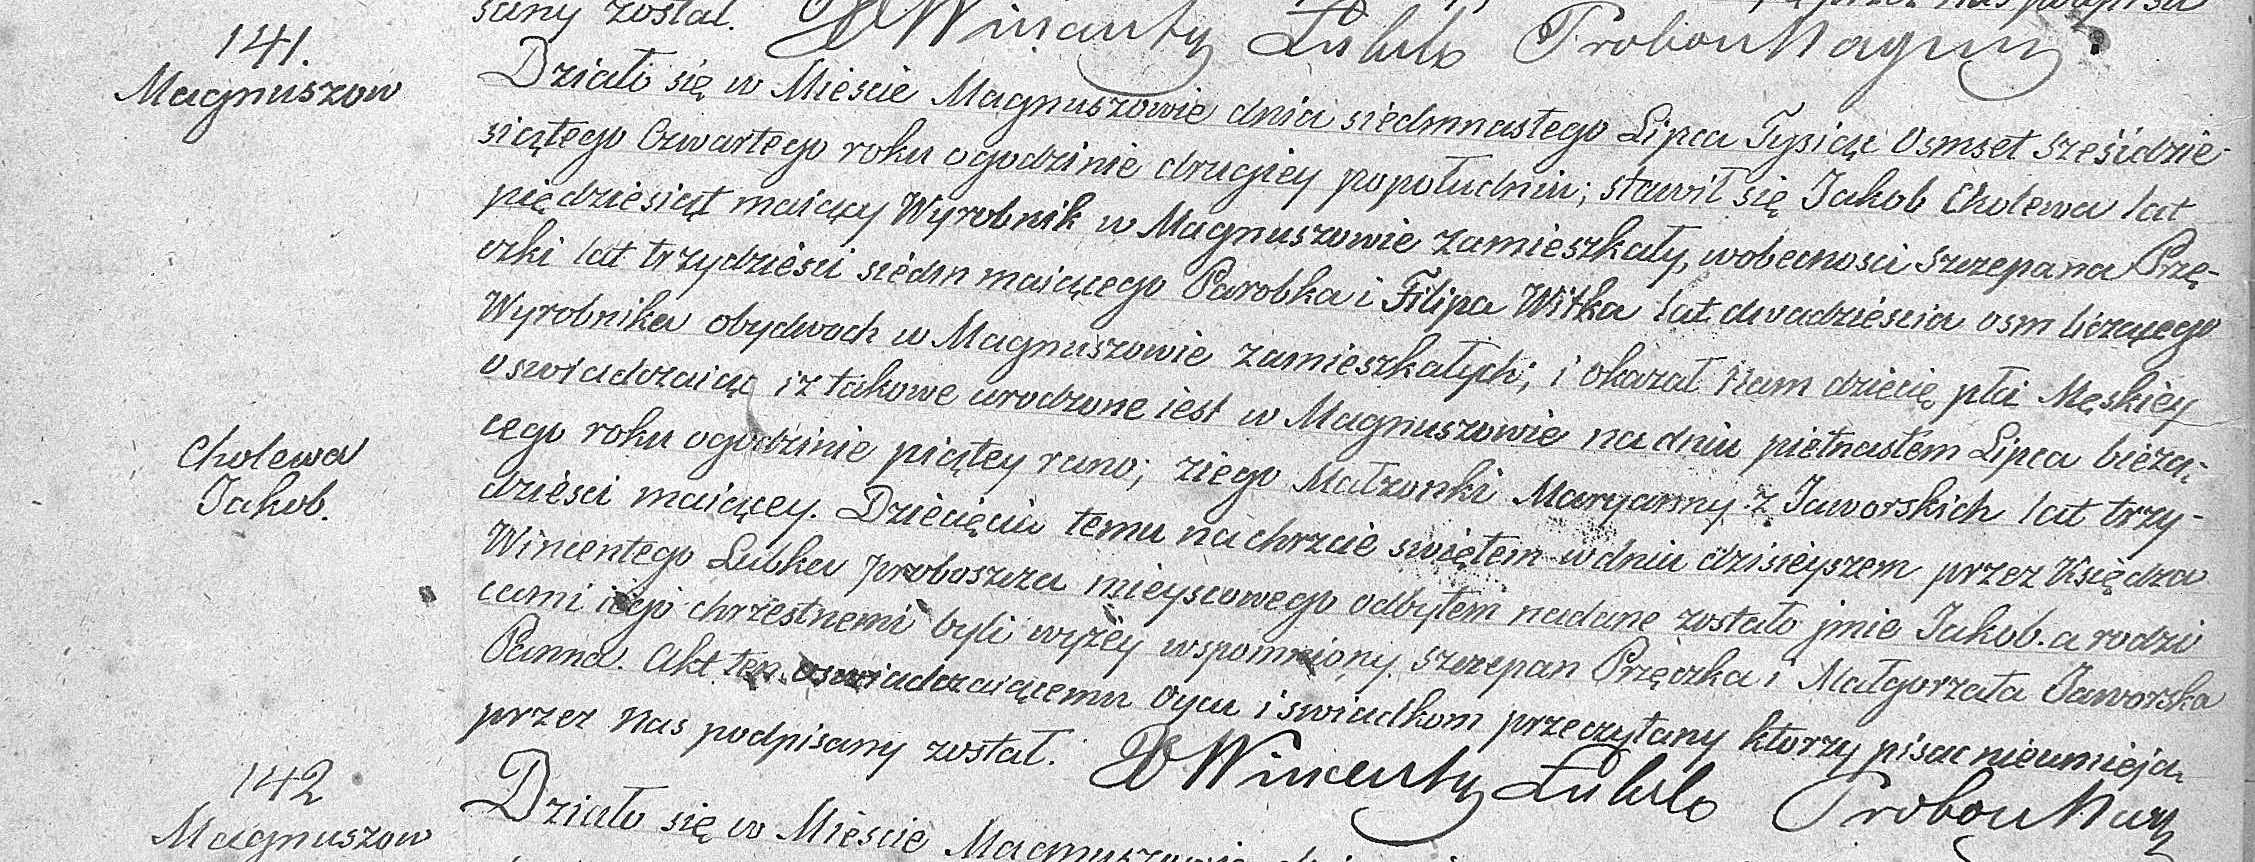 sany został. X Wincenty Lubk Probos Magnu
141.
Magnuszow
Działo się w Mieście Magnuszowie dnia siedmnastego Lipca Tysiąc Osmset sześćdzie-
siątego Czwartego roku ogodzinie drugiey popołudniu; stawił się Jakob Cholewa lat
piędziesiąt maiący Wyrobnik w Magnuszowie zamieszkały, wobecnosci Szczepana Prżę-
czki lat trzydzieści siedm maiącego Parobka i Filipa Witka lat dwadzieścia osm liczącego
Wyrobnika obydwoch w Magnuszowie zamieszkałych; i okazał Nam dziecię płci Męskiey
oswiadczaiąc iz takowe urodzone iest w Magnuszowie na dniu piętnastem Lipca bieżą-
cego roku ogodzinie piątey rano; ziego Małżonki Maryanny z Jaworskich lat trzy-
dzieści maiącey. Dziecięciu temu na chrzcie swiętem w dniu dzisieyszem przez Księdza
Wincentego Lubka proboszcza mieyscowego odbytem nadane zostało jmie Jakob. a rodzi
cami iego chrzestnemi byli wyżey wspomniony Szczepan Pręczka i Małgorzata Jaworska
Panna. Akt ten oswiadczaiącemu oycu i swiadkom przeczytany ktorzy pisac nieumieją
przez Nas podpisany został. X Wincenty Lubk Probos Mag
Cholewa
Jakob.
142
Magnuszow
Działo się w Mieście Magnuszowie